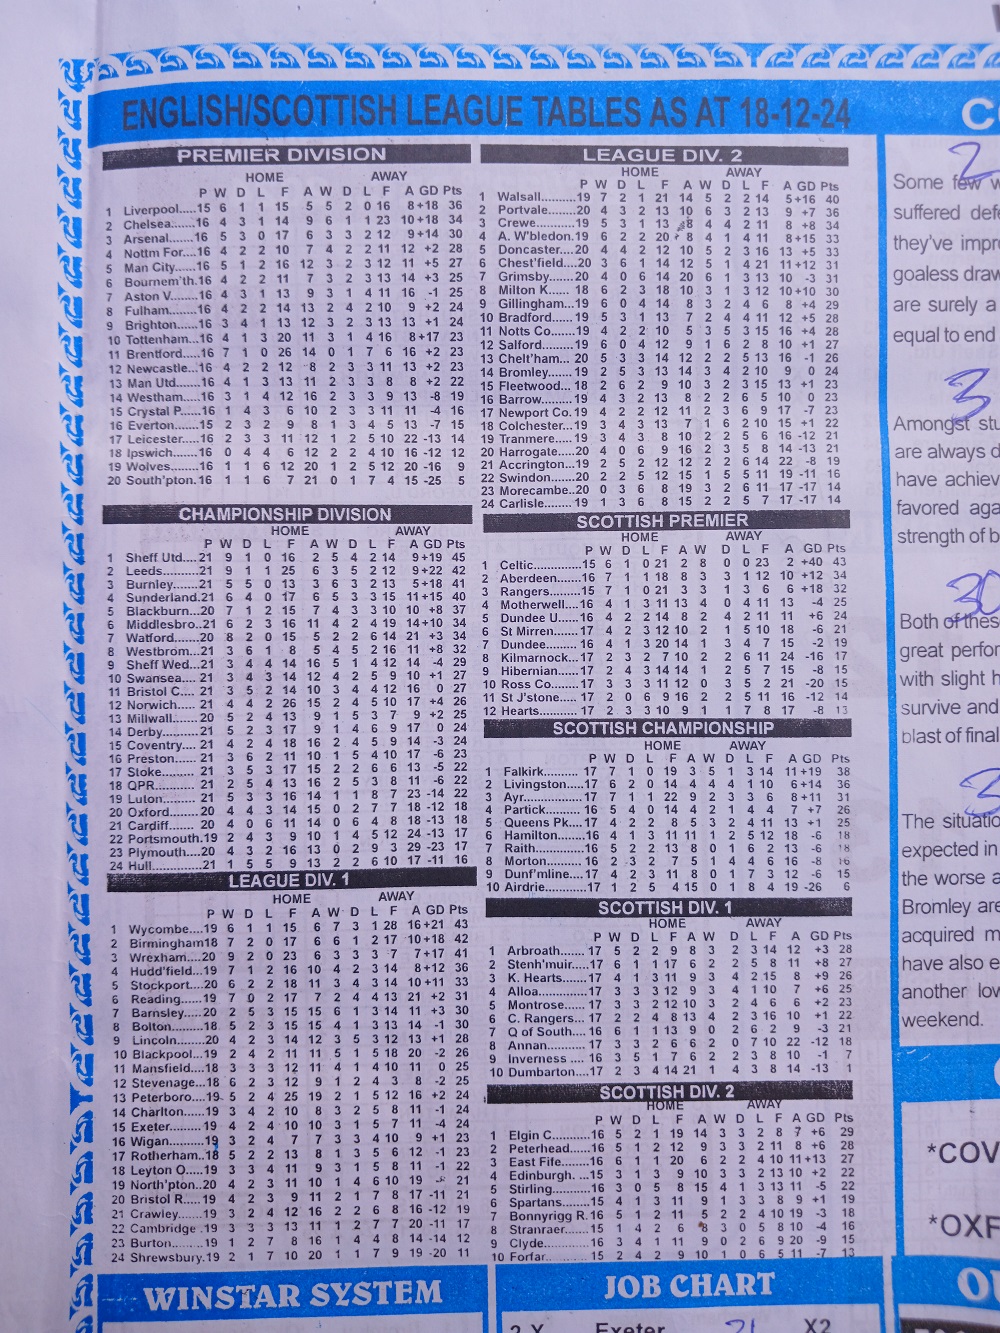 ENGLISH/SCOTTISH LEAGUE TABLES AS AT 18-12-24
PREMIER DIVISION
HOME AWAY
P W D L F A W D L F A GD Pts
1 Liverpool.....15 6 1 1 15 5 5 2 0 16 8 +18 36
2 Chelsea.......16 4 3 1 14 9 6 1 1 23 10 +18 34
3 Arsenal.......16 5 3 0 17 6 3 3 2 12 9 +14 30
4 Nottm For....16 4 2 2 10 7 4 2 2 11 12 +2 28
5 Man City......16 5 1 2 16 12 3 2 3 12 11 +5 27
6 Bournem'th.16 4 2 2 11 7 3 2 3 13 14 +3 25
7 Aston V.......16 4 3 1 13 9 3 1 4 11 16 -1 25
8 Fulham........16 4 2 2 14 13 2 4 2 10 9 +2 24
9 Brighton......16 3 4 1 13 12 3 2 3 13 13 +1 24
10 Tottenham..16 4 1 3 20 11 3 1 4 16 8 +17 23
11 Brentford....16 7 1 0 26 14 0 1 7 6 16 +2 23
12 Newcastle...16 4 2 2 12 8 2 3 3 11 13 +2 23
13 Man Utd......16 4 1 3 13 11 2 3 3 8 8 +2 22
14 Westham....16 3 1 4 12 16 2 3 3 9 13 -8 19
15 Crystal P.....16 1 4 3 6 10 2 3 3 11 11 -4 16
16 Everton.......15 2 3 2 9 8 1 3 4 5 13 -7 15
17 Leicester.....16 2 3 3 11 12 1 2 5 10 22 -13 14
18 Ipswich.......16 0 4 4 6 12 2 2 4 10 16 -12 12
19 Wolves.......16 1 1 6 12 20 1 2 5 12 20 -16 9
20 South'pton.16 1 1 6 7 21 0 1 7 4 15 -25 5
CHAMPIONSHIP DIVISION
HOME AWAY
P W D L F A W D L F A GD Pts
1 Sheff Utd....21 9 1 0 16 2 5 4 2 14 9 +19 45
2 Leeds.........21 9 1 1 25 6 3 5 2 12 9 +22 42
3 Burnley.......21 5 5 0 13 3 6 3 2 13 5 +18 41
4 Sunderland.21 6 4 0 17 6 5 3 3 15 11 +15 40
5 Blackburn...20 7 1 2 15 7 4 3 3 10 10 +8 37
6 Middlesbro..21 6 2 3 16 11 4 2 4 19 14 +10 34
7 Watford......20 8 2 0 15 5 2 2 6 14 21 +3 34
8 Westbrom...21 3 6 1 8 5 4 5 2 16 11 +8 32
9 Sheff Wed...21 3 4 4 14 16 5 1 4 12 14 -4 29
10 Swansea....21 3 4 3 14 12 4 2 5 9 10 +1 27
11 Bristol C.... 21 3 5 2 14 10 3 4 4 12 16 0 27
12 Norwich..... 21 4 4 2 26 15 2 4 5 10 17 +4 26
13 Millwall...... 20 5 2 4 13 9 1 5 3 7 9 +2 25
14 Derby........ 21 5 2 3 17 9 1 4 6 9 17 0 24
15 Coventry.... 21 4 2 4 18 16 2 4 5 9 14 -3 24
16 Preston...... 21 3 6 2 11 10 1 5 4 10 17 -6 23
17 Stoke......... 21 3 5 3 17 15 2 2 6 6 13 -5 22
18 QPR........... 21 2 5 4 13 16 2 5 3 8 11 -6 22
19 Luton......... 21 5 3 3 16 14 1 1 8 7 23 -14 22
20 Oxford....... 20 4 4 3 14 15 0 2 7 7 18 -12 18
21 Cardiff....... 20 4 0 6 11 14 0 6 4 8 18 -13 18
22 Portsmouth.19 2 4 3 9 10 1 4 5 12 24 -13 17
23 Plymouth....20 4 3 2 16 13 0 2 9 3 29 -23 17
24 Hull............21 1 5 5 9 13 2 2 6 10 17 -11 16
LEAGUE DIV. 1
HOME AWAY
P W D L F A W D L F A GD Pts
1 Wycombe....19 6 1 1 15 6 7 3 1 28 16 +21 43
2 Birmingham18 7 2 0 17 6 6 1 2 17 10 +18 42
3 Wrexham....20 9 2 0 23 6 3 3 3 7 7 +17 41
4 Hudd'field...19 7 1 2 16 10 4 2 3 14 8 +12 36
5 Stockport....20 6 2 2 18 11 3 4 3 14 10 +11 33
6 Reading......19 7 0 2 17 7 2 4 4 13 21 +2 31
7 Barnsley.....20 2 5 3 15 15 6 1 3 14 11 +3 30
8 Bolton........18 5 2 3 15 15 4 1 3 13 14 -1 30
9 Lincoln.......20 4 2 3 14 12 3 5 3 12 13 +1 28
10 Blackpool...19 2 4 2 11 11 5 1 5 18 20 -2 26
11 Mansfield....18 3 3 3 12 11 4 1 4 10 11 0 25
12 Stevenage...18 6 2 3 12 9 1 2 4 3 8 -2 25
13 Peterboro....19 5 2 4 25 19 2 1 5 12 16 +2 24
14 Charlton......19 3 4 2 10 8 3 2 5 8 11 -1 24
15 Exeter.........19 4 2 4 10 10 3 1 5 7 11 -4 24
16 Wigan.........19 3 2 4 7 7 3 3 4 10 9 +1 23
17 Rotherham..18 5 2 2 13 8 1 3 5 6 12 -1 23
18 Leyton O.....19 3 3 4 11 9 3 1 5 8 11 -1 22
19 North'pton..20 4 2 3 11 10 1 4 6 10 19 21
20 Bristol R.....19 4 2 3 9 11 2 1 7 8 17 -11 21
21 Crawley......19 3 2 4 12 16 2 2 6 8 16 -12 19
22 Cambridge .19 3 3 3 13 11 1 2 7 7 20 -11 17
23 Burton........19 1 2 7 8 16 1 4 4 8 14 -14 12
24 Shrewsbury.19 2 1 7 10 20 1 1 7 9 19 -20 11
LEAGUE DIV. 2
HOME AWAY
P W D L F A W D L F A GD Pts
1 Walsall.........19 7 2 1 21 14 5 2 2 14 5 +16 40
2 Portvale.......20 4 3 2 13 10 6 3 2 13 9 +7 36
3 Crewe..........19 5 3 1 13 8 4 4 2 11 8 +8 34
4 A. W'bledon.19 6 2 2 20 8 4 1 4 11 8 +15 33
5 Doncaster....20 4 4 2 12 10 5 2 3 16 13 +5 33
6 Chest'field....20 3 6 1 14 12 5 1 4 21 11 +12 31
7 Grimsby.......20 4 0 6 14 20 6 1 3 13 10 -3 31
8 Milton K...... 18 6 2 3 18 10 3 1 3 12 10 +10 30
9 Gillingham...19 6 0 4 14 8 3 2 4 6 8 +4 29
10 Bradford......19 5 3 1 13 7 2 4 4 11 12 +5 28
11 Notts Co......19 4 2 2 10 5 3 5 3 15 16 +4 28
12 Salford........19 6 0 4 12 9 1 6 2 8 10 +1 27
13 Chelt'ham... 20 5 3 3 14 12 2 2 5 13 16 -1 26
14 Bromley......19 2 5 3 13 14 3 4 2 10 9 0 24
15 Fleetwood... 18 2 6 2 9 10 3 2 3 15 13 +1 23
16 Barrow........19 4 3 2 13 8 2 2 6 5 10 0 23
17 Newport Co. 19 4 2 2 12 11 2 3 6 9 17 -7 23
18 Colchester...19 3 4 3 13 7 1 6 2 10 15 +1 22
19 Tranmere.....19 3 4 3 8 10 2 2 5 6 16 -12 21
20 Harrogate....20 4 0 6 9 16 2 3 5 8 14 -13 21
21 Accrington...19 2 5 2 12 12 2 2 6 14 22 -8 19
22 Swindon......20 2 2 5 12 15 1 5 5 11 19 -11 16
23 Morecambe..20 0 3 6 8 19 3 2 6 11 17 -17 14
24 Carlisle.......19 1 3 6 8 15 2 2 5 7 17 -17 14
SCOTTISH PREMIER
HOME AWAY
P W D L F A W D L F A GD Pts
1 Celtic...........15 6 1 0 21 2 8 0 0 23 2 +40 43
2 Aberdeen.....16 7 1 1 18 8 3 3 1 12 10 +12 34
3 Rangers.......15 7 1 0 21 3 3 1 3 6 6 +18 32
4 Motherwell...16 4 1 3 11 13 4 0 4 11 13 -4 25
5 Dundee U.....16 4 2 2 14 8 2 4 2 11 11 +6 24
6 St Mirren.....17 4 2 3 12 10 2 1 5 10 18 -6 21
7 Dundee........16 4 1 3 20 14 1 3 4 7 15 -2 19
8 Kilmarnock...17 2 3 2 7 10 2 2 6 11 24 -16 17
9 Hibernian.....17 2 4 3 14 14 1 2 5 7 15 -8 15
10 Ross Co......17 3 3 3 11 12 0 3 5 2 21 -20 15
11 St J'stone....17 2 0 6 9 16 2 2 5 11 16 -12 14
12 Hearts.........17 2 3 3 10 9 1 1 7 8 17 -8 13
SCOTTISH CHAMPIONSHIP
HOME AWAY
P W D L F A W D L F A GD Pts
1 Falkirk.......... 17 7 1 0 19 3 5 1 3 14 11 +19 38
2 Livingston..... 17 6 2 0 14 4 4 4 1 10 6 +14 36
3 Ayr............... 17 7 1 1 22 9 2 3 3 6 8 +11 31
4 Partick......... 16 5 4 0 14 4 2 1 4 4 7 +7 26
5 Queens Pk.... 17 4 2 2 8 5 3 2 4 11 13 +1 25
6 Hamilton.......16 4 1 3 11 11 1 2 5 12 18 -6 18
7 Raith............16 5 2 2 13 8 0 1 6 2 13 -6 18
8 Morton.........16 2 3 2 7 5 1 4 4 6 16 -8 16
9 Dunf'mline....17 4 2 3 11 8 0 1 7 3 12 -6 15
10 Airdrie..........17 1 2 5 4 15 0 1 8 4 19 -26 6
SCOTTISH DIV. 1
HOME AWAY
P W D L F A W D L F A GD Pts
1 Arbroath.......17 5 2 2 9 8 3 2 3 14 12 +3 28
2 Stenh'muir....17 6 1 1 17 6 2 2 5 8 11 +8 27
3 K. Hearts......17 4 1 3 11 9 3 4 2 15 8 +9 26
4 Alloa............17 3 3 3 12 9 3 4 1 10 7 +6 25
5 Montrose......17 3 3 2 12 10 3 2 4 6 6 +2 23
6 C. Rangers...17 2 2 4 8 13 4 2 3 16 10 +1 22
7 Q of South....16 6 1 1 13 9 0 2 6 2 9 -3 21
8 Annan..........17 3 3 2 6 6 2 0 7 10 22 -12 18
9 Inverness .... 16 3 5 1 7 6 2 2 3 8 10 -1 7
10 Dumbarton....17 2 3 4 14 21 1 4 3 8 14 -13 1
SCOTTISH DIV. 2
HOME AWAY
P W D L F A W D L F A GD Pts
1 Elgin C..........16 5 2 1 19 14 3 3 2 8 7 +6 29
2 Peterhead......16 5 1 2 12 9 3 3 2 11 8 +6 28
3 East Fife........16 6 1 1 20 6 2 2 4 10 11 +13 27
4 Edinburgh. ...15 3 1 3 9 10 3 3 2 13 10 +2 22
5 Stirling..........16 3 0 5 8 15 4 1 3 13 11 -5 22
6 Spartans.......15 4 1 3 11 9 1 3 3 8 9 +1 19
7 Bonnyrigg R.16 5 1 2 11 5 2 2 4 10 19 -3 18
8 Stranraer......15 1 4 2 6 8 3 0 5 8 10 -4 16
9 Clyde...........16 3 4 1 11 9 0 2 6 9 20 -9 15
10 Forfar..........15 2 4 2 9 10 1 0 6 5 11 -7 13
WINSTAR SYSTEM
JOB CHART
2 X Exeter 21 X2
C
2
Some few w
suffered defe
they've impro
goaless draw
are surely a
equal to end
3
Amongst stu
are always d
have achiev
favored aga
strength of b
30
Both of these
great perfor
with slight h
survive and
blast of final
3
The situatio
expected in
the worse a
Bromley are
acquired m
have also e
another low
weekend.
*COV
*OXF